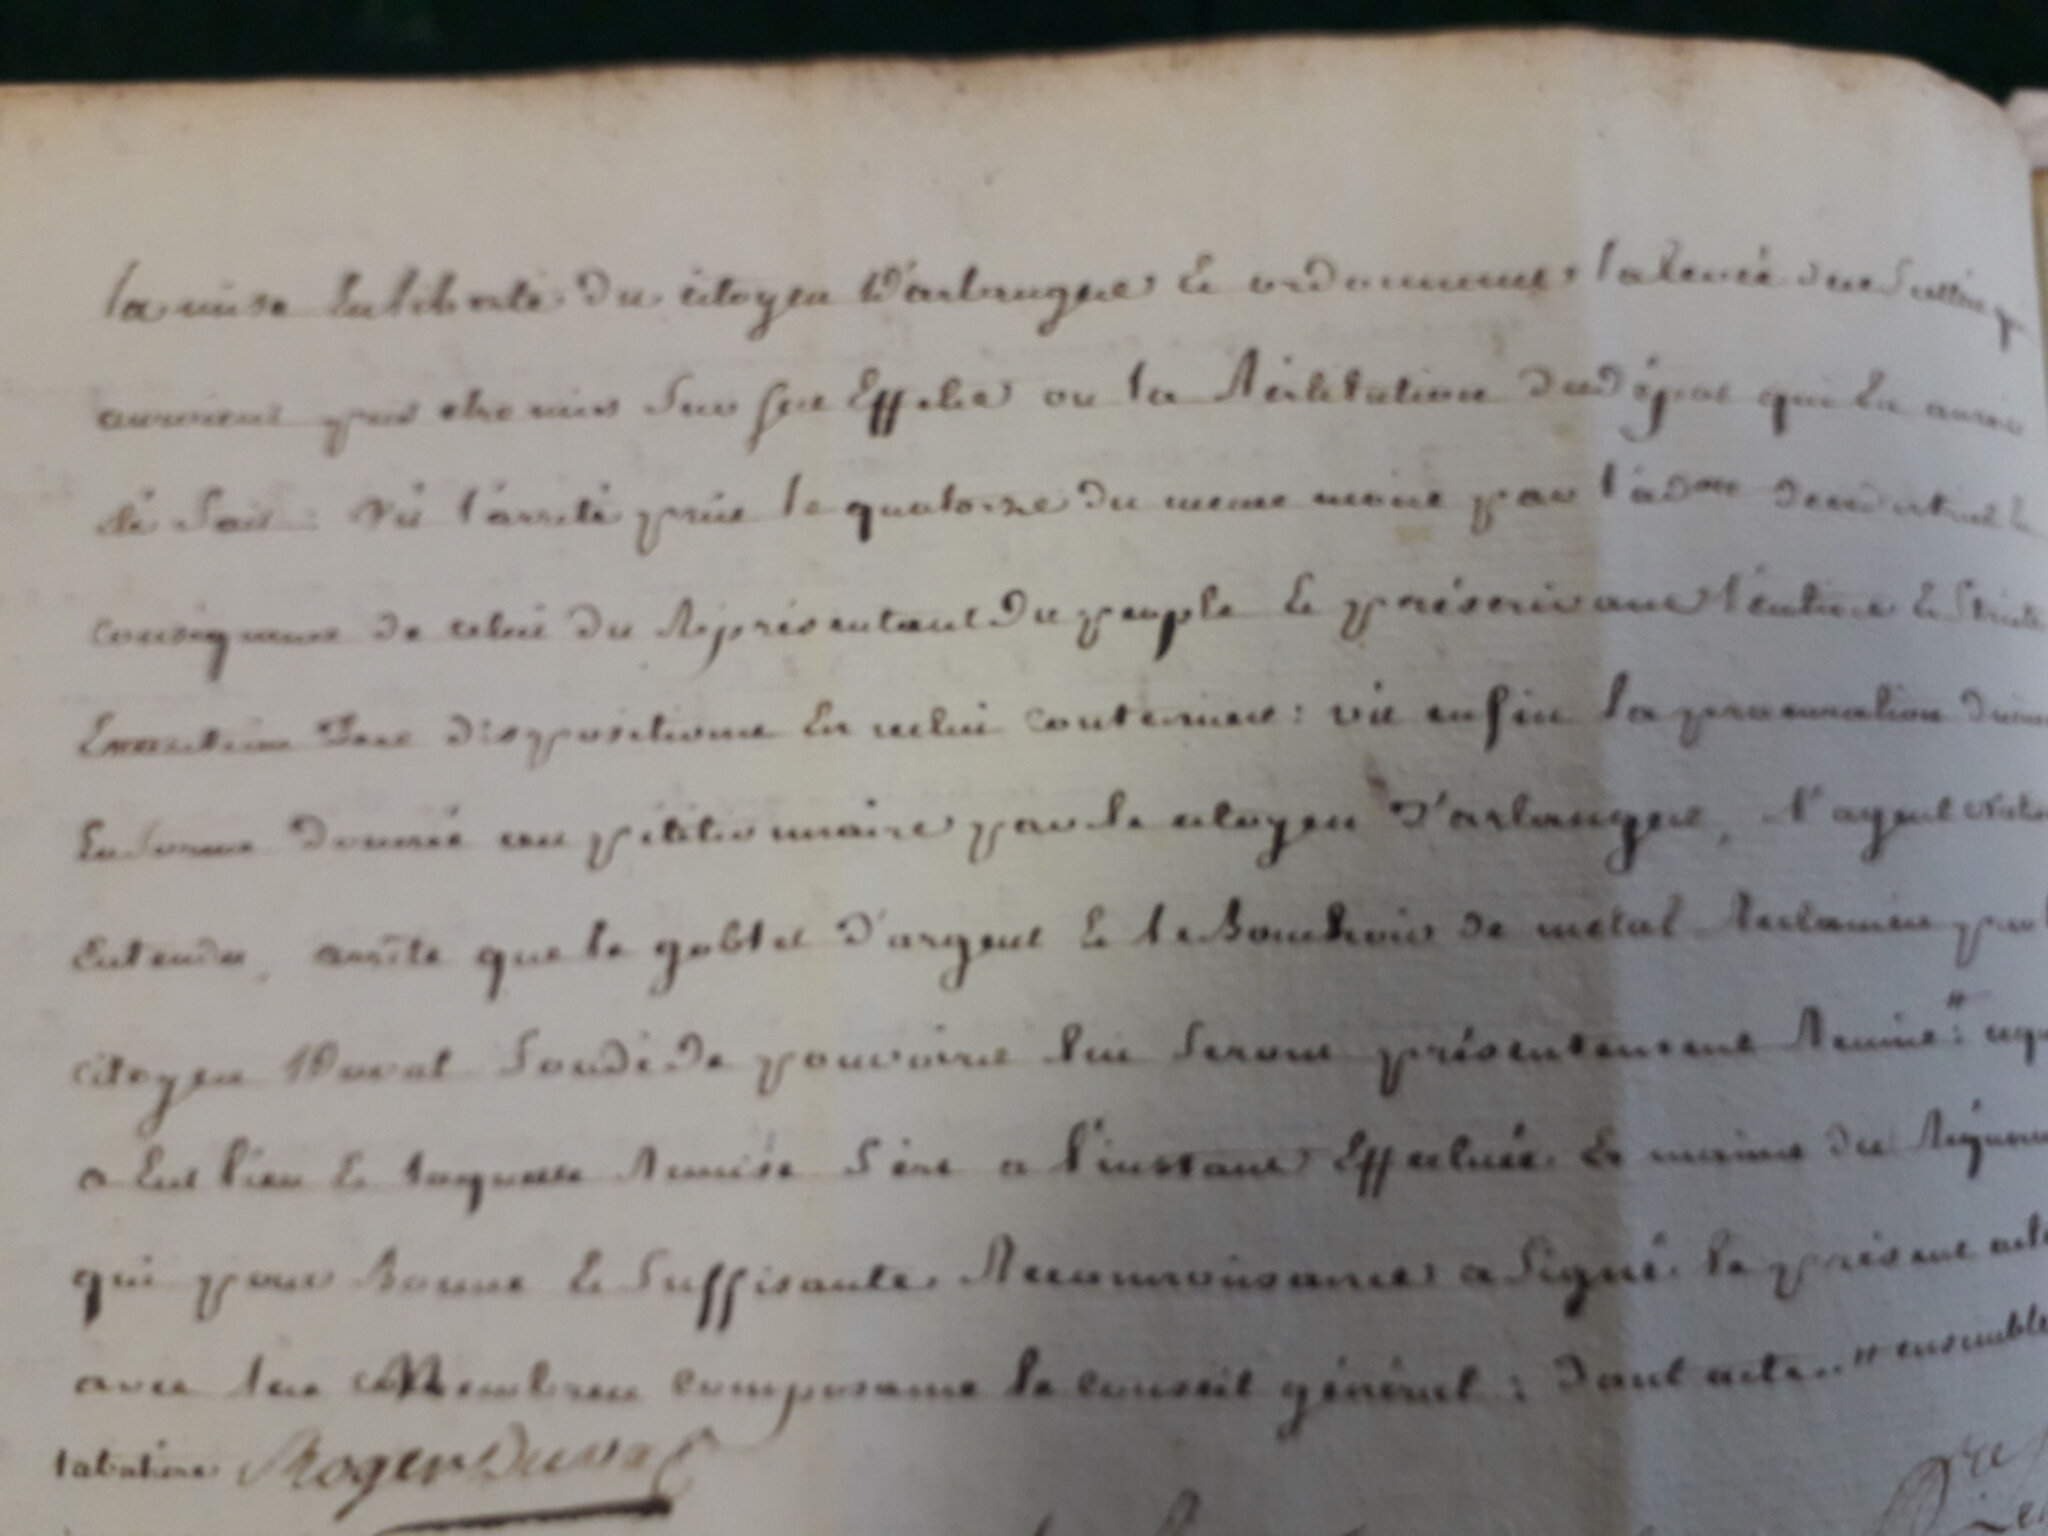 la mise en liberté du citoyen D'arlangue et ordonnent la levée des scellés q
auroient pus etre mis sur ses Effets ou la Restitution du dépot qui en auroit
été fait: Vû l'arrêté pris le quatorze du meme mois par l'adon du
conséquence de celui du Représentant du peuple et prescrivant l'entiere et Stricte
Execution des dispositions en icelui contenues: vû enfin la procuration
En forme donnée au pétitionnaire par le citoyen D'arlangue, l'agent
Entendu, arrête que le gobelet d'argent et le Bouchoir de métal Reclamés par
citoyen Duval fondé de pouvoirs lui seront présentement Remis:#
a Eut lieu et laquelle Remise s'est a l'instant Effectuée Es mains du
qui pour Bonne et Suffisante Reconnoissance a Signé le présent acte
avec les Membres composant le conseil général: dont acte.. # ensemble
tabatiere Roger Duval